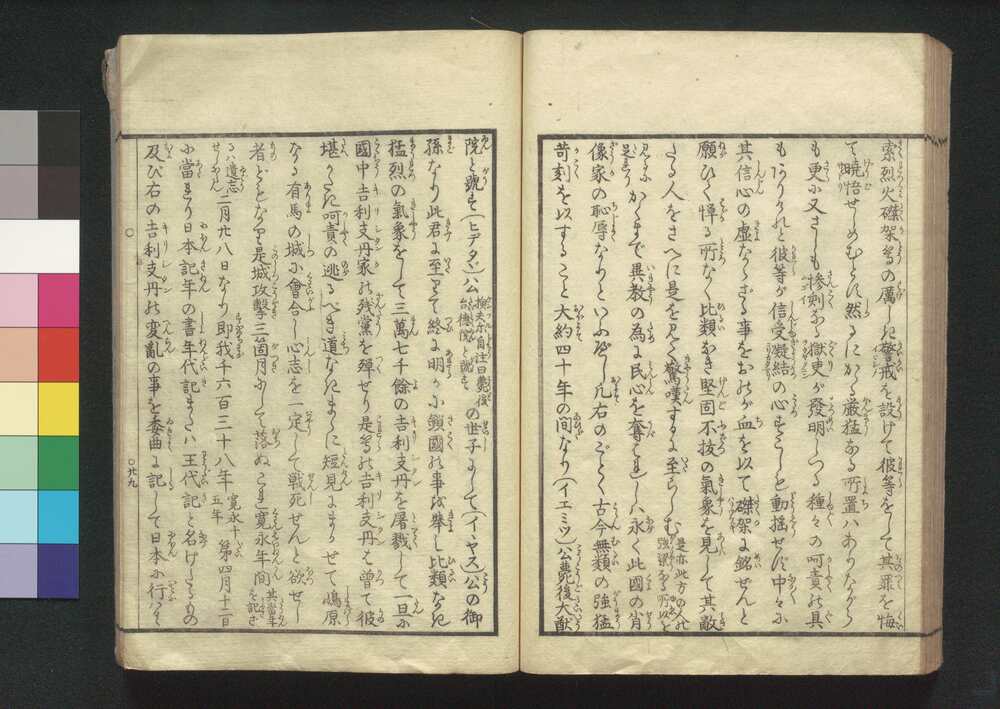 索烈火磔架等の厲しき警戒を設けて彼等をして其罪を悔
て曉悟せしめむとに然るにかゝる嚴猛なる所置ハありながら
も更に又さしも慘刻なる獄吏が發明しつる種々の呵責の具
もありけれと彼等が信受凝結の心すこしも動揺せず中々に
其信心の虚ならざる事をおのが血を以て磔架に銘せんと
願ひて憚る所なく比類なき堅固不抜の氣象を見して其敵
たる人をさへに是を見て驚嘆するに至らしむ
かくまで異教の為に民心を奪はれしハ永く此國の肖
像家の恥辱なりといふべし凡右のごとく古今無類の強猛
苛刻を以すること大約四十年の間なり(イエミツ)公薨後大猷
院と號す(ヒデタダ)公
楫夫本自注曰薨後
台德院と號す
の世子にして(イヽヤス)公の御
孫なり此君に至りて終に明かに鎖國の事を擧し比類なき
猛烈の氣象をして三萬七千餘の吉利支丹を屠戮して一旦に
國中吉利支丹家の残黨を殫せり是等の吉利支丹は曾て彼
堪がたき呵責の逃るべき道なきまゝに短見にまかせて嶋原
なる有馬の城に會合し心志を一定して戰死せんと欲せし
者どもなり是城攻撃三箇月にして落ぬこは寛永年間
其當年
を記さ
るハ遺志
せしならん
二月廿八日なり即我千六百三十八年
寛永十
五年
第四月十二日
に當れり日本記年の書年代記または王代記と名けしもの
及び右の吉利支丹の變亂の事を委曲に記して日本に行はる
廿九